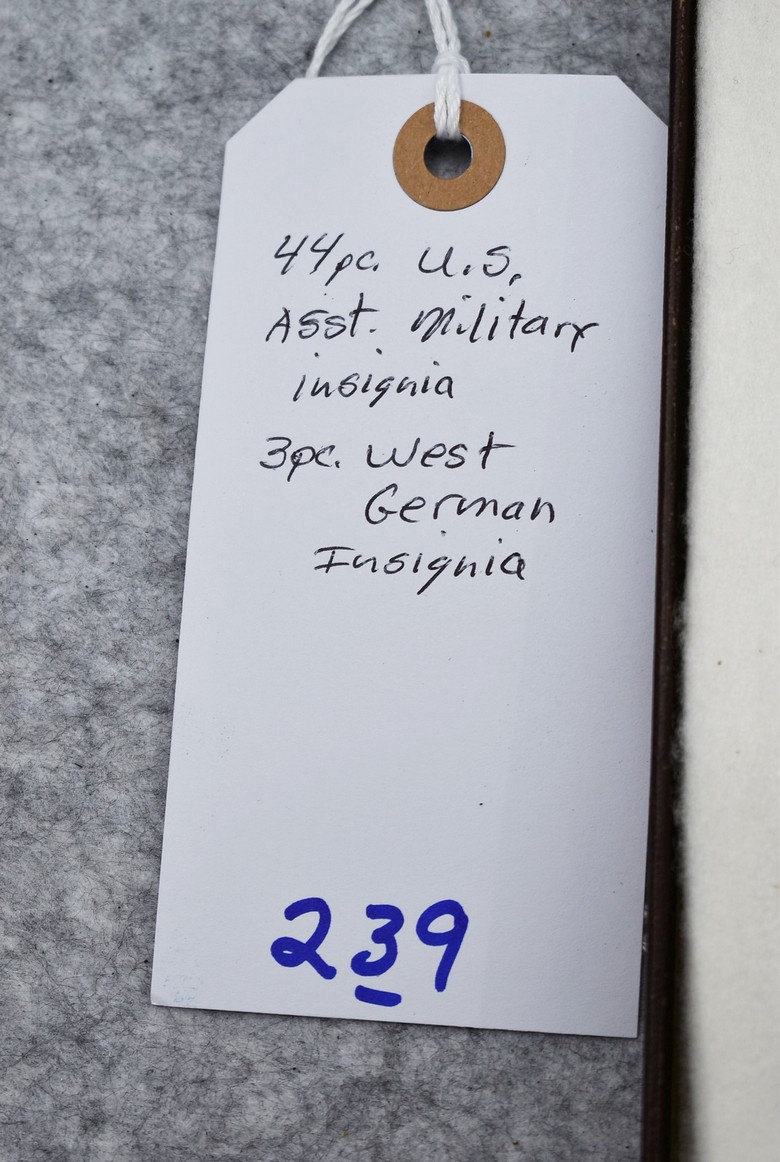 44pc. U.S.
Asst. Military
insignia
3pc. West
German
Insignia
239